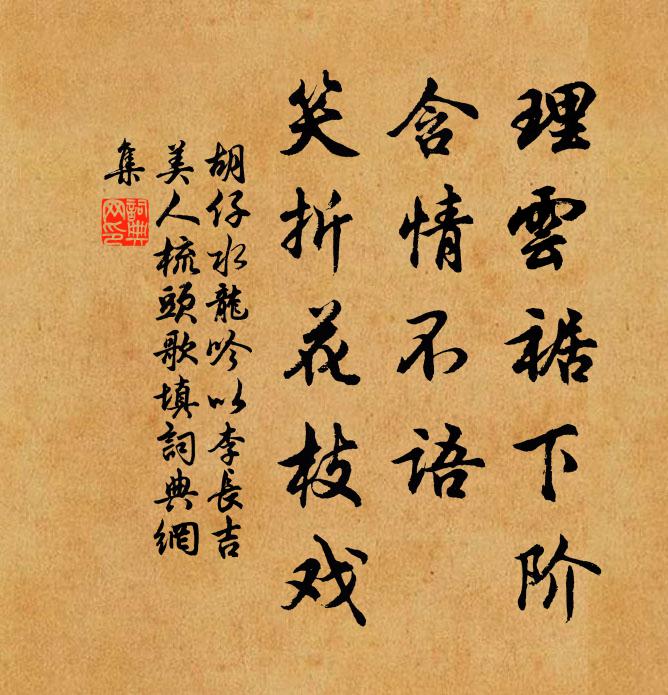 理雲裾下阶
含情不语
笑折花枝戏
胡仔水龍吟以李長吉
美人梳頭歌填詞典網
集
詞典網印